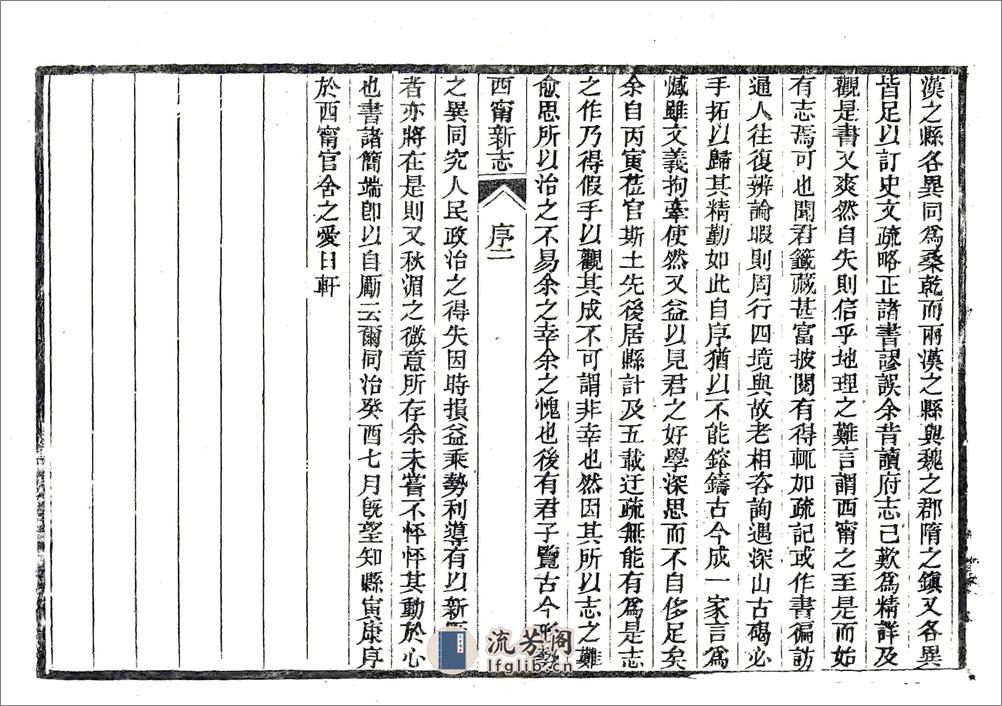 漢之縣各異同為桑乾而兩漢之縣與魏之郡隋之鎮又各異
皆足以訂史文疏略正諸書謬誤余昔讀府志已歎為精詳及
觀是書又爽然自失則信乎地理之難言謂西甯之至是而始
有志焉可也聞君籤藏甚富披閱有得輒加疏記或作書徧訪
通人往復辨論暇則周行四境與故老相咨詢遇深山古碣必
手拓以歸其精勤如此自序猶以不能鎔鑄古今成一家言為
憾雖文義拘牽使然又益以見君之好學深思而不自侈足矣
余自丙寅莅官斯土先後居縣計及五載迂疏無能有為是志
之作乃得假手以觀其成不可謂非幸也然因其所以志之難
愈思所以治之不易余之幸余之愧也後有君子覽古今形勢
西甯新志 序 二
之異同究人民政治之得失因時損益乘勢利導有以新
者亦將在是則又秋湄之微意所存余未嘗不怦怦其動於心
也書諸簡端卽以自勵云爾同治癸酉七月旣望知縣寅康序
於西甯官舍之愛日軒
流芳阁
lfglib.cn